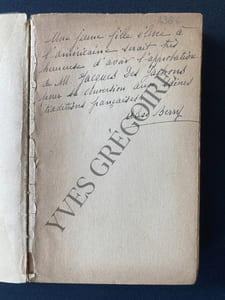 1386
Une jeune fille élevée à
l'américaine serait très
heureuse d'avoir l'approbation
de M. Jacques des Gachons
pour sa conversion aux saines
traditions françaises
Berry
YVES GRÉGOIRE